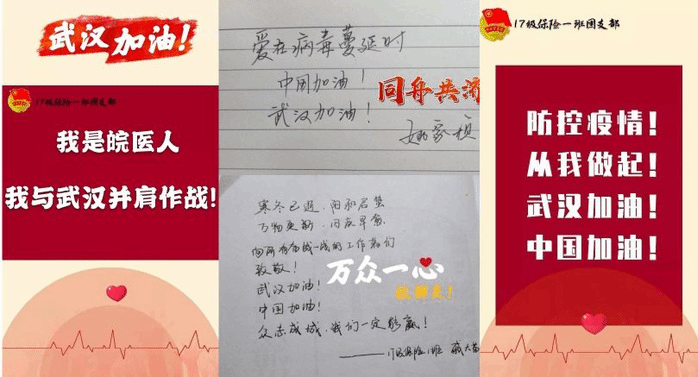 武汉加油!
17级保险一班团支部
我是皖医人
我与武汉并肩作战!
爱在病毒蔓延时
中国加油!
武汉加油!
同舟共济
寒冬已退，阳和启蛰
万物更新，
向所有奋战一线的工作者们
致敬!
武汉加油!
中国加油!
众志成城，我们一定能赢!
——17级保险1班
万众一心
17级保险一班团支部
防控疫情!
从我做起!
武汉加油!
中国加油!